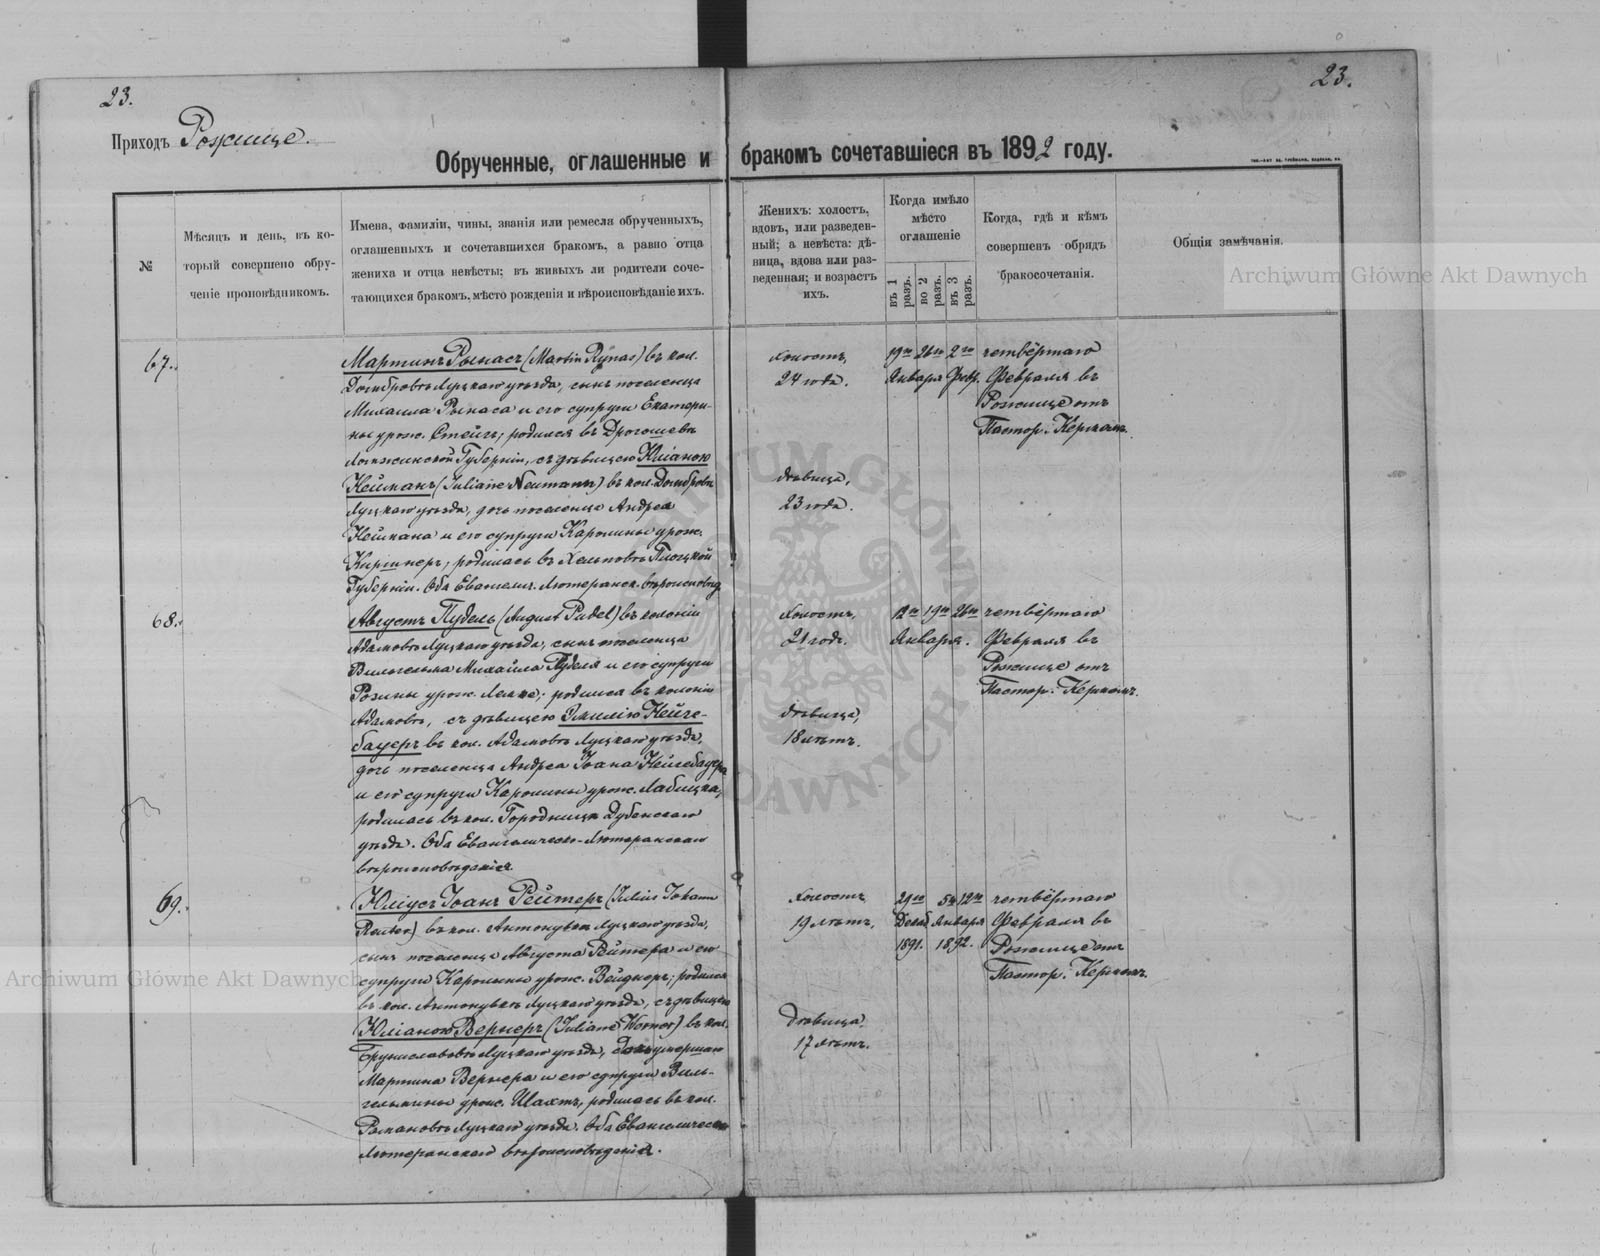 23.
23.
Приходъ Рожище.
Обрученные, оглашенные и бракомъ сочетавшіеся въ 1892 году.
№
Мѣсяцъ и день, въ ко-
торый совершено обру-
ченіе проповѣдникомъ.
Имена, фамиліи, чины, званія или ремесла обрученныхъ,
оглашенныхъ и сочетавшихся бракомъ, а равно отца
жениха и отца невѣсты; въ живыхъ ли родители соче-
тающихся бракомъ, мѣсто рожденія и вѣроисповѣданіе ихъ.
Женихъ: холостъ,
вдовъ, или разведен-
ный; а невѣста: дѣ-
вица, вдова или раз-
веденная; и возрастъ
ихъ.
Когда имѣло
мѣсто
оглашеніе
въ 1 разъ.
во 2 разъ.
въ 3 разъ.
Когда, гдѣ и кѣмъ
совершенъ обрядъ
бракосочетанія.
Общія замѣчанія.
67.
Мартинъ Рынасъ (Martin Rynas) въ кол.
Домбровѣ Луцкаго уѣзда, сынъ поселенца
Михаила Рынаса и его супруги Екатери-
ны урож. Стейгъ; родился въ
Ломжинской Губерніи, съ дѣвицею Юліаною
Нейманъ (Juliane Neumann) въ кол. Домбровѣ
Луцкаго уѣзда, дочь поселенца Андрея
Неймана и его супруги Каролины урож.
Киршнеръ, родилась въ Плоцкой
Губерніи. Оба Евангел. Лютеранск. вѣроисповѣд.
холостъ,
24 года.
дѣвица,
23 года.
19го 26го 2го
Января Февр.
четвёртаго
Февраля въ
Рожище отъ
Пастор. Керкомъ.
68.
Августъ Пудель (August Pudel) въ колоніи
Адамовѣ Луцкаго уѣзда, сынъ поселенца
Вильгельма Михаила Пуделя и его супруги
Розины урож. Лемке; родился въ колоніи
Адамовѣ, съ дѣвицею Эмиліею Нейге-
бауеръ въ кол. Адамовѣ Луцкаго уѣзда,
дочь поселенца Андрея Іоана Нейгебауера
и его супруги Каролины урож. Лабицка,
родилась въ кол. Городница Дубенскаго
уѣзда. Оба Евангелическо-Лютеранскаго
вѣроисповѣданія.
холостъ,
21 годъ.
дѣвица,
18 лѣтъ.
12го 19го 26го
Января.
четвёртаго
Февраля въ
Рожище отъ
Пастор. Керкомъ.
69.
Юліусъ Іоанъ Рейтеръ (Julius Johann
Reuter) въ кол. Антонувкѣ Луцкаго уѣзда,
сынъ поселенца Августа Рейтера и его
супруги Каролины урож. Вейднеръ; родился
въ кол. Антонувкѣ Луцкаго уѣзда, съ дѣвицею
Юліаною Вернеръ (Juliane Werner) въ кол.
Брониславовѣ Луцкаго уѣзда, дочь умершаго
Мартина Вернера и его супруги Виль-
гельмины урож. Шахтъ, родилась въ кол.
Романовѣ Луцкаго уѣзда. Оба Евангелическо
Лютеранскаго вѣроисповѣданія.
холостъ
19 лѣтъ,
дѣвица
17 лѣтъ.
29го 5го 12го
Декаб. Января
1891. 1892.
четвёртаго
Февраля въ
Рожище отъ
Пастор. Керкомъ.
Archiwum Główne Akt Dawnych
Archiwum Główne Akt Dawnych